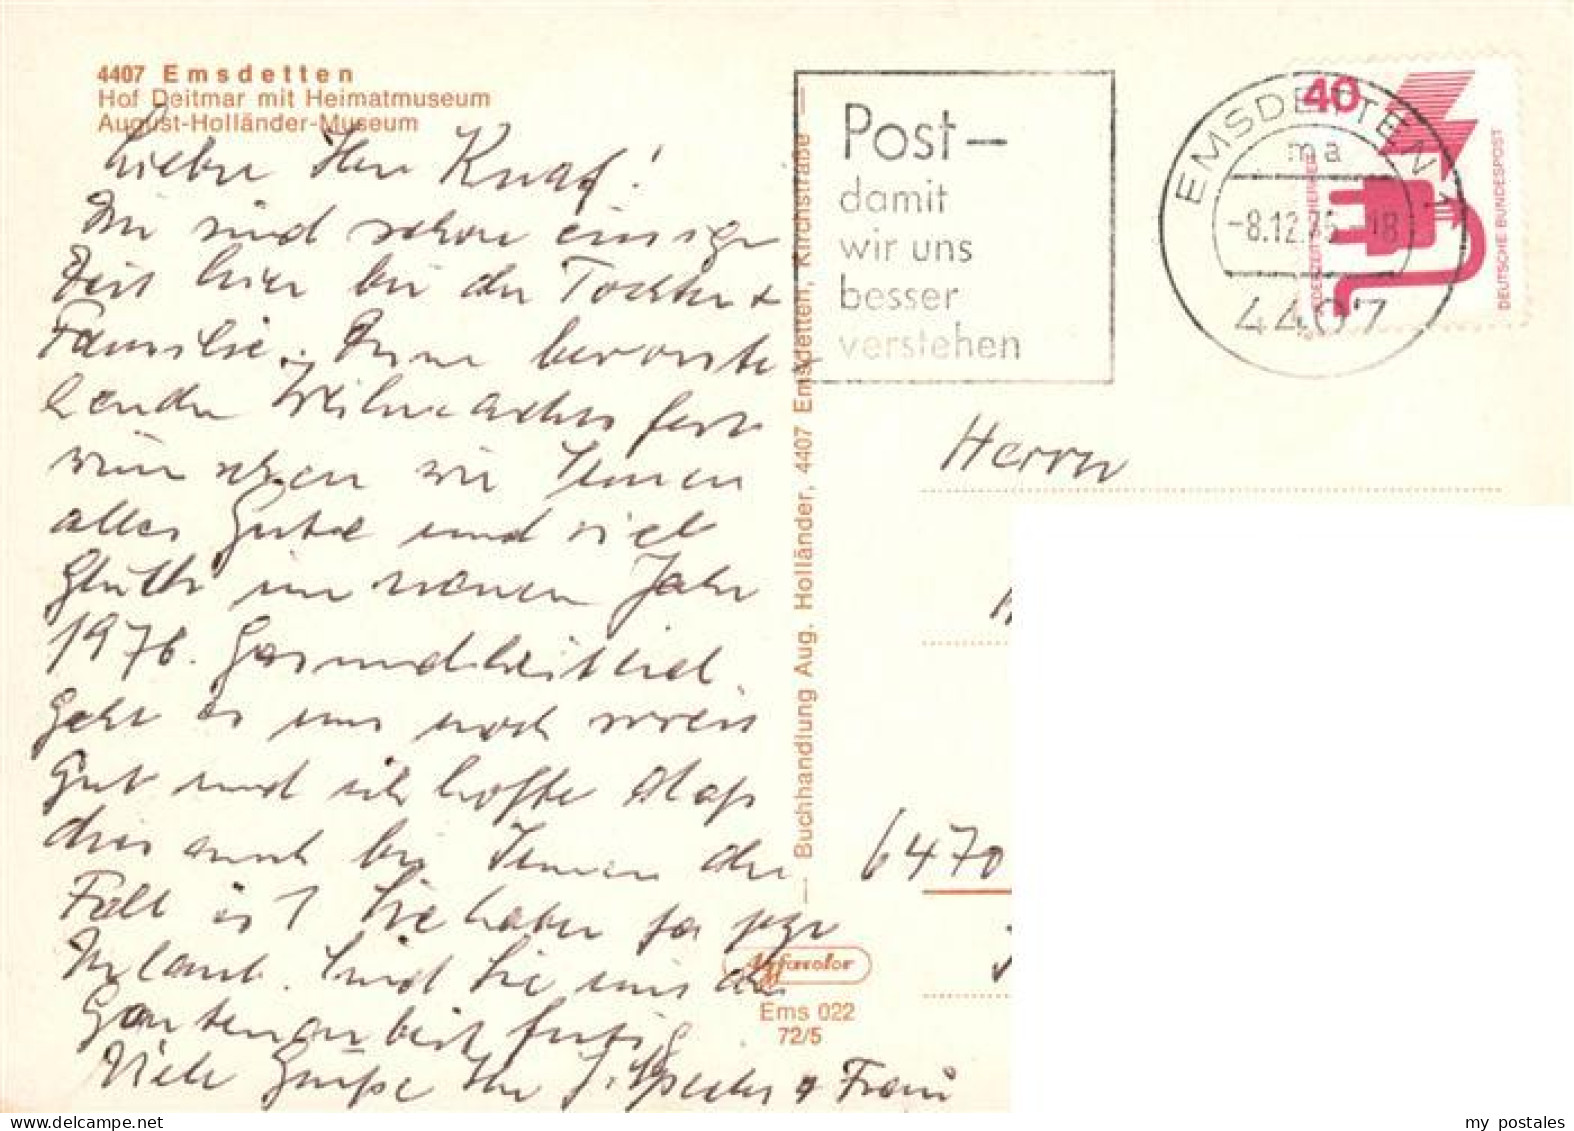 4407 Emsdetten
Hof Deitmar mit Heimatmuseum
August-Holländer-Museum
Lieber Herr Knaf!
Wir sind schon einige
Zeit hier bei der Tochter +
Familie. Zum bevorste
henden Weihnachtsfest
wünschen wir Ihnen
alles Gute und viel
Glück im neuen Jahr
1976. Gesundheitlich
geht es uns noch soweit
Gut und ich hoffe daß
dies auch bei Ihnen der
Fall ist! Sie haben ja jetzt
Urlaub. Sind Sie mit der
Gartenarbeit fertig
Viele Grüße Ihr + Frau
Buchhandlung Aug. Holländer, 4407 Emsdetten, Kirchstraße
Agfacolor
Ems 022
72/5
Post –
damit
wir uns
besser
verstehen
EMSDETTEN 1
ma
-8.12.75-18
4407
40
JEDERZEIT SICHERHEIT
DEUTSCHE BUNDESPOST
Herrn
6470
my postales